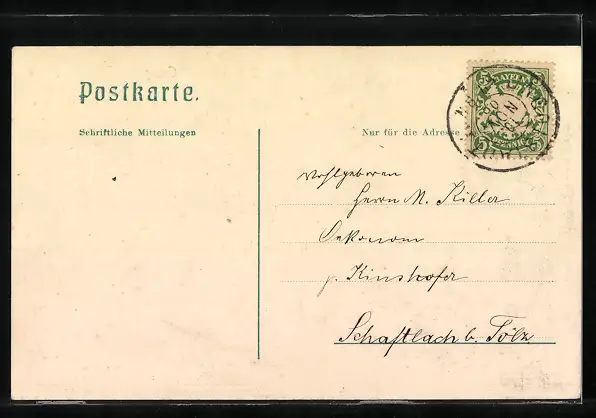 Postkarte.
Schriftliche Mitteilungen
Nur für die Adresse
BAYERN
5 PFENNIG 5
Wohlgeboren
Herrn M. Killer
Oekonom
p. Kinshofer
Schaftlach b. Tölz.